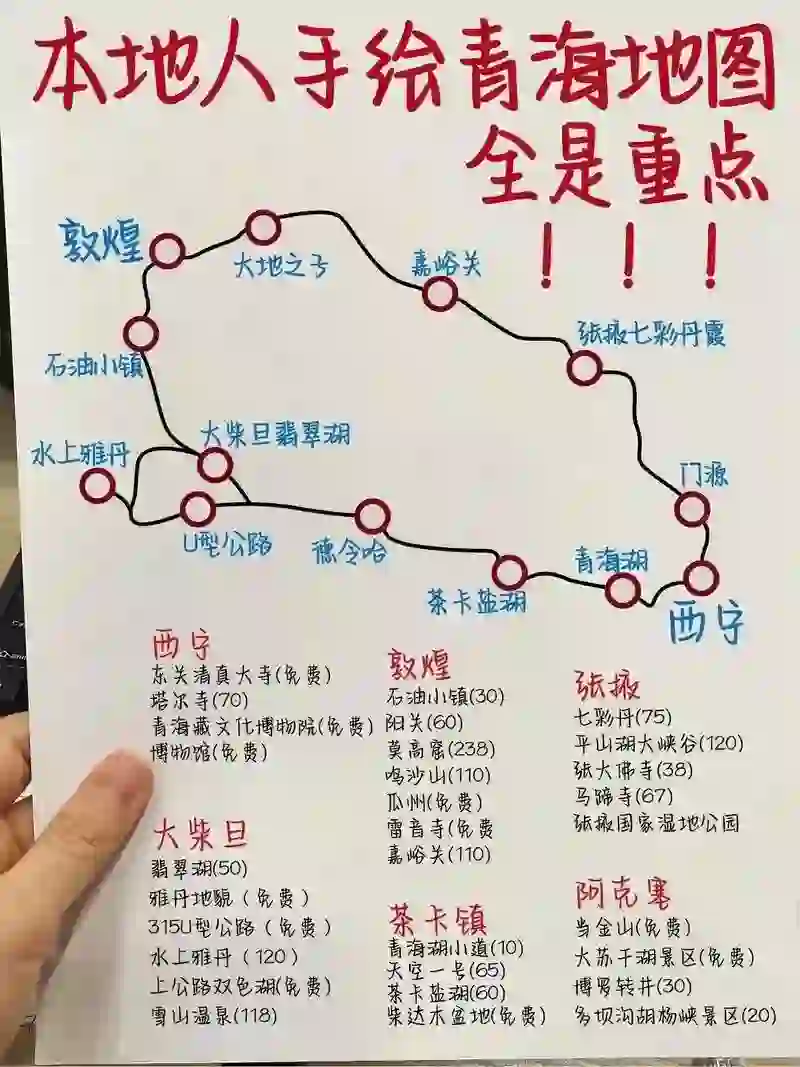 本地人手绘青海地图
全是重点
!!!
敦煌
大地之子
嘉峪关
张掖七彩丹霞
石油小镇
水上雅丹
大柴旦翡翠湖
门源
U型公路
德令哈
茶卡盐湖
青海湖
西宁
西宁
东关清真大寺(免费)
塔尔寺(70)
青海藏文化博物院(免费)
博物馆(免费)
敦煌
石油小镇(30)
阳关(60)
莫高窟(238)
鸣沙山(110)
瓜州(免费)
雷音寺(免费
嘉峪关(110)
张掖
七彩丹(75)
平山湖大峡谷(120)
张大佛寺(38)
马蹄寺(67)
张掖国家湿地公园
大柴旦
翡翠湖(50)
雅丹地貌(免费)
315U型公路(免费)
水上雅丹(120)
上公路双色湖(免费)
雪山温泉(118)
茶卡镇
青海湖小道(10)
天空一号(65)
茶卡盐湖(60)
柴达木盆地(免费)
阿克塞
当金山(免费)
大苏干湖景区(免费)
博罗转井(30)
多坝沟胡杨峡景区(20)